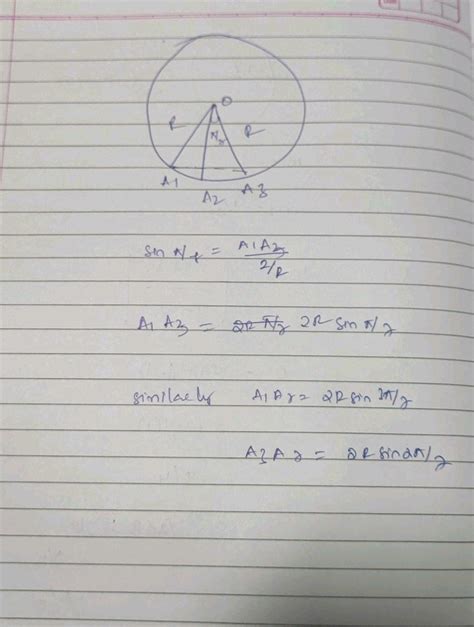 O
R R
π/7
A1 A2 A3
sin π/7 = A1A2/2/R
A1 A2 = 2R π/7 2R sin π/7
similarly A1A7 = 2R sin 3π/7
A3A7 = 2R sin2π/7